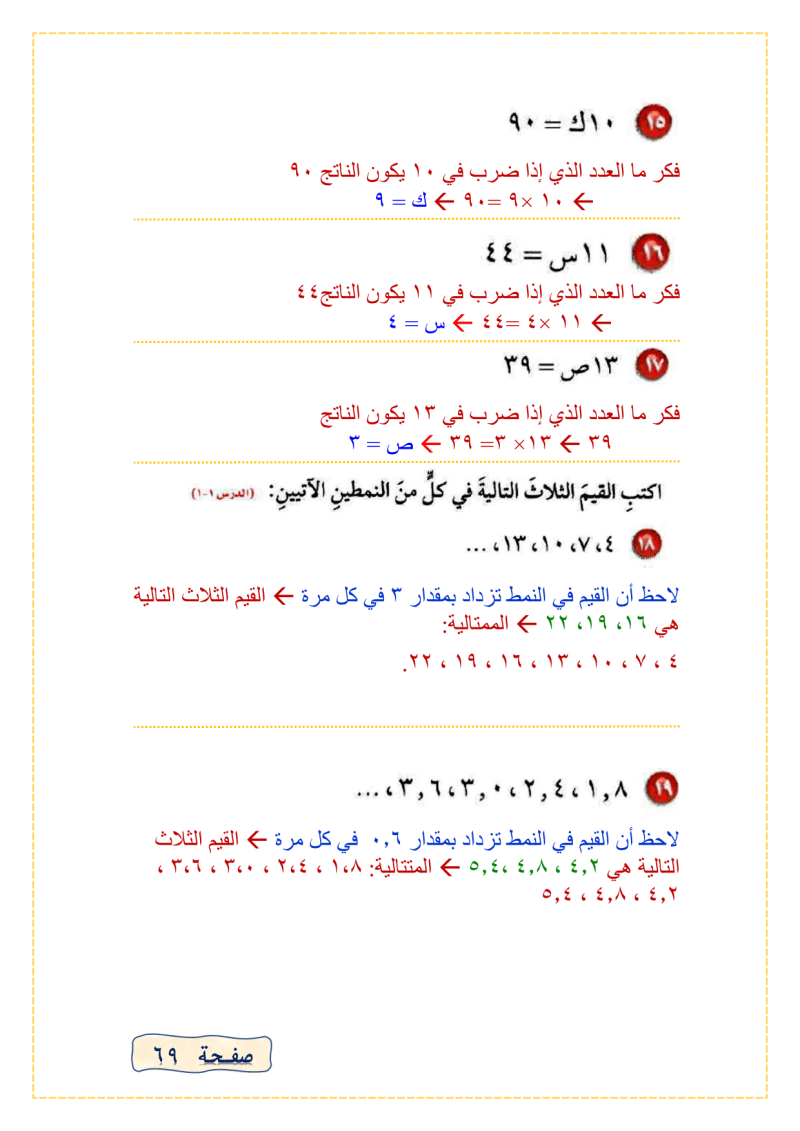 ١٥ ١٠ك = ٩٠
فكر ما العدد الذي إذا ضرب في ١٠ يكون الناتج ٩٠
← ١٠ ×٩ =٩٠ ← ك = ٩
١٦ ١١س = ٤٤
فكر ما العدد الذي إذا ضرب في ١١ يكون الناتج٤٤
← ١١ ×٤ =٤٤ ← س = ٤
١٧ ١٣ص = ٣٩
فكر ما العدد الذي إذا ضرب في ١٣ يكون الناتج
٣٩ ← ١٣× ٣= ٣٩ ← ص = ٣
اكتبِ القيمَ الثلاثَ التاليةَ في كلٍّ منَ النمطينِ الآتيينِ: (الدرس ١-١)
١٨ ٤، ٧، ١٠، ١٣، ...
لاحظ أن القيم في النمط تزداد بمقدار ٣ في كل مرة ← القيم الثلاث التالية
هي ١٦، ١٩، ٢٢ ← الممتالية:
٤ ، ٧ ، ١٠ ، ١٣ ، ١٦ ، ١٩ ، ٢٢.
١٩ ١,٨ ، ٢,٤ ، ٣,٠ ، ٣,٦ ، ...
لاحظ أن القيم في النمط تزداد بمقدار ٠,٦ في كل مرة ← القيم الثلاث
التالية هي ٤,٢ ، ٤,٨ ،٥,٤ ← المتتالية: ١،٨ ، ٢،٤ ، ٣،٠ ، ٣،٦ ،
٤,٢ ، ٤,٨ ، ٥,٤
صفحة ٦٩